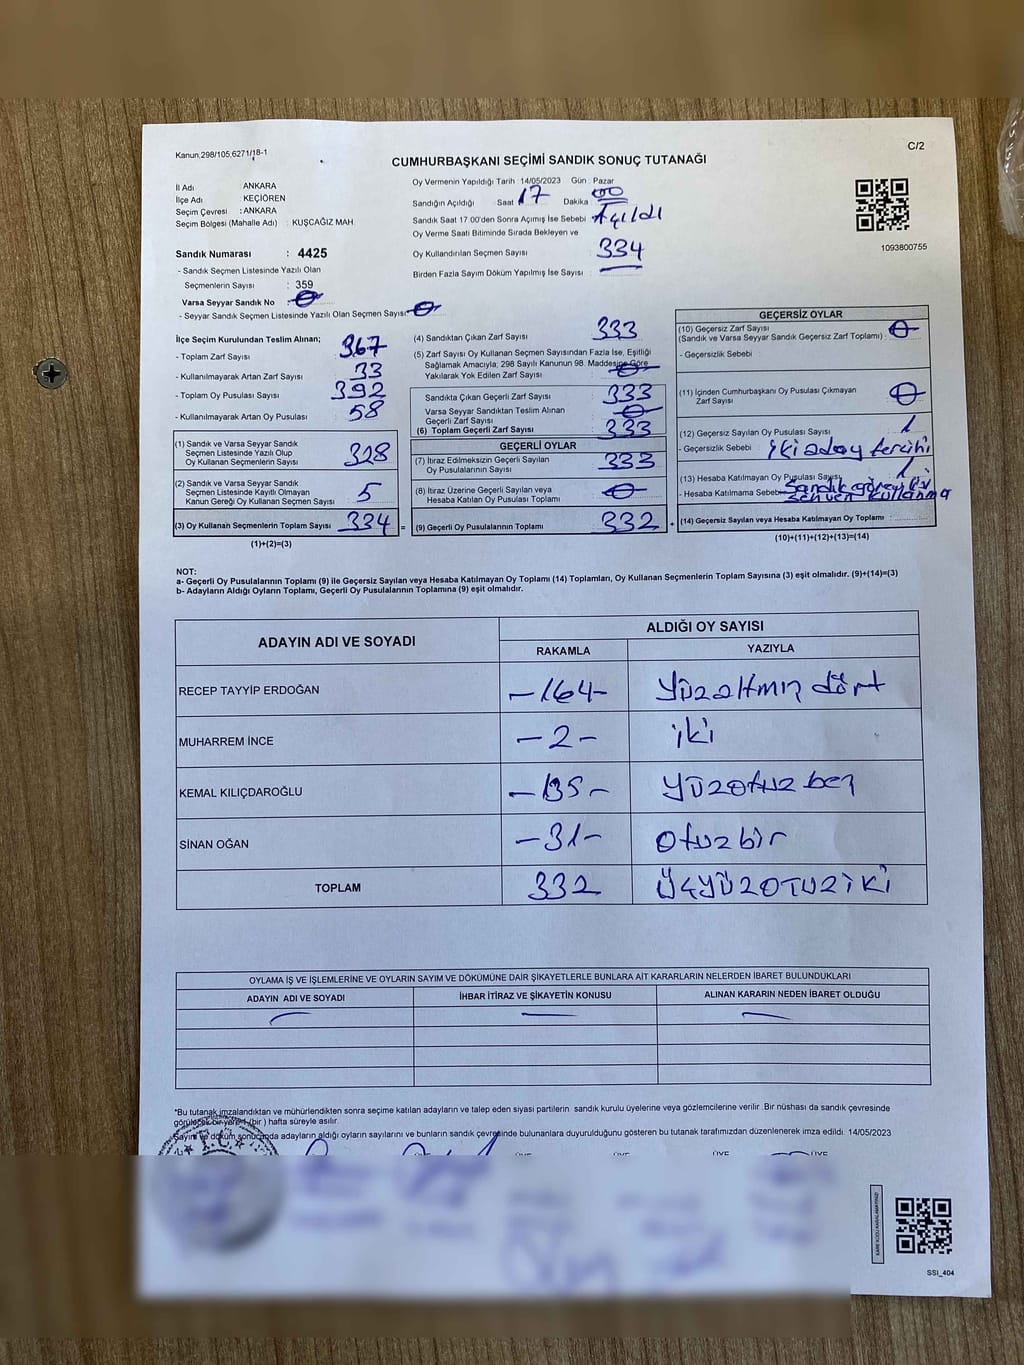 Kanun:298/105;6271/18-1
C/2
CUMHURBAŞKANI SEÇİMİ SANDIK SONUÇ TUTANAĞI
İl Adı : ANKARA
İlçe Adı : KEÇİÖREN
Seçim Çevresi : ANKARA
Seçim Bölgesi (Mahalle Adı) : KUŞCAĞIZ MAH.
Sandık Numarası : 4425
- Sandık Seçmen Listesinde Yazılı Olan
Seçmenlerin Sayısı : 359
Varsa Seyyar Sandık No :
- Seyyar Sandık Seçmen Listesinde Yazılı Olan Seçmen Sayısı:
Oy Vermenin Yapıldığı Tarih : 14/05/2023 Gün : Pazar
Sandığın Açıldığı Saat 17 Dakika 00
Sandık Saat 17:00'den Sonra Açımış İse Sebebi Açıldı
Oy Verme Saati Bitiminde Sırada Bekleyen ve
Oy Kullandırılan Seçmen Sayısı : 334
Birden Fazla Sayım Döküm Yapılmış İse Sayısı :
1093800755
İlçe Seçim Kurulundan Teslim Alınan;
- Toplam Zarf Sayısı : 367
- Kullanılmayarak Artan Zarf Sayısı : 33
- Toplam Oy Pusulası Sayısı : 392
- Kullanılmayarak Artan Oy Pusulası : 58
(1) Sandık ve Varsa Seyyar Sandık
Seçmen Listesinde Yazılı Olup
Oy Kullanan Seçmenlerin Sayısı : 328
(2) Sandık ve Varsa Seyyar Sandık
Seçmen Listesinde Kayıtlı Olmayan
Kanun Gereği Oy Kullanan Seçmen Sayısı : 5
(3) Oy Kullanan Seçmenlerin Toplam Sayısı : 334 =
(1)+(2)=(3)
(4) Sandıktan Çıkan Zarf Sayısı : 333
(5) Zarf Sayısı Oy Kullanan Seçmen Sayısından Fazla İse, Eşitliği
Sağlamak Amacıyla; 298 Sayılı Kanunun 98. Maddesine Göre
Yakılarak Yok Edilen Zarf Sayısı :
Sandıkta Çıkan Geçerli Zarf Sayısı : 333
Varsa Seyyar Sandıktan Teslim Alınan
Geçerli Zarf Sayısı :
(6) Toplam Geçerli Zarf Sayısı : 333
GEÇERLİ OYLAR
(7) İtiraz Edilmeksizin Geçerli Sayılan
Oy Pusulalarının Sayısı : 333
(8) İtiraz Üzerine Geçerli Sayılan veya
Hesaba Katılan Oy Pusulası Toplamı :
(9) Geçerli Oy Pusulalarının Toplamı : 332 +
GEÇERSİZ OYLAR
(10) Geçersiz Zarf Sayısı
(Sandık ve Varsa Seyyar Sandık Geçersiz Zarf Toplamı) :
- Geçersizlik Sebebi :
(11) İçinden Cumhurbaşkanı Oy Pusulası Çıkmayan
Zarf Sayısı :
(12) Geçersiz Sayılan Oy Pusulası Sayısı : 1
- Geçersizlik Sebebi : iki aday tercihi
(13) Hesaba Katılmayan Oy Pusulası Sayısı : 1
- Hesaba Katılmama Sebebi : Sandık görevlisi
sehven kullanma
(14) Geçersiz Sayılan veya Hesaba Katılmayan Oy Toplamı :
(10)+(11)+(12)+(13)=(14)
NOT:
a- Geçerli Oy Pusulalarının Toplamı (9) ile Geçersiz Sayılan veya Hesaba Katılmayan Oy Toplamı (14) Toplamları, Oy Kullanan Seçmenlerin Toplam Sayısına (3) eşit olmalıdır. (9)+(14)=(3)
b- Adayların Aldığı Oyların Toplamı, Geçerli Oy Pusulalarının Toplamına (9) eşit olmalıdır.
ADAYIN ADI VE SOYADI
ALDIĞI OY SAYISI
RAKAMLA YAZIYLA
RECEP TAYYİP ERDOĞAN -164- Yüzaltmış dört
MUHARREM İNCE -2- iki
KEMAL KILIÇDAROĞLU -135- Yüzotuz beş
SİNAN OĞAN -31- Otuz bir
TOPLAM 332 ÜÇYÜZOTUZİKİ
OYLAMA İŞ VE İŞLEMLERİNE VE OYLARIN SAYIM VE DÖKÜMÜNE DAİR ŞİKAYETLERLE BUNLARA AİT KARARLARIN NELERDEN İBARET BULUNDUKLARI
ADAYIN ADI VE SOYADI İHBAR İTİRAZ VE ŞİKAYETİN KONUSU ALINAN KARARIN NEDEN İBARET OLDUĞU
*Bu tutanak imzalandıktan ve mühürlendikten sonra seçime katılan adayların ve talep eden siyasi partilerin sandık kurulu üyelerine veya gözlemcilerine verilir. Bir nüshası da sandık çevresinde
görülecek bir yere 1 (bir) hafta süreyle asılır.
Sayım ve döküm sonucunda adayların aldığı oyların sayılarını ve bunların sandık çevresinde bulunanlara duyurulduğunu gösteren bu tutanak tarafımızdan düzenlenerek imza edildi. 14/05/2023
ÜYE ÜYE ÜYE ÜYE
SSI_404